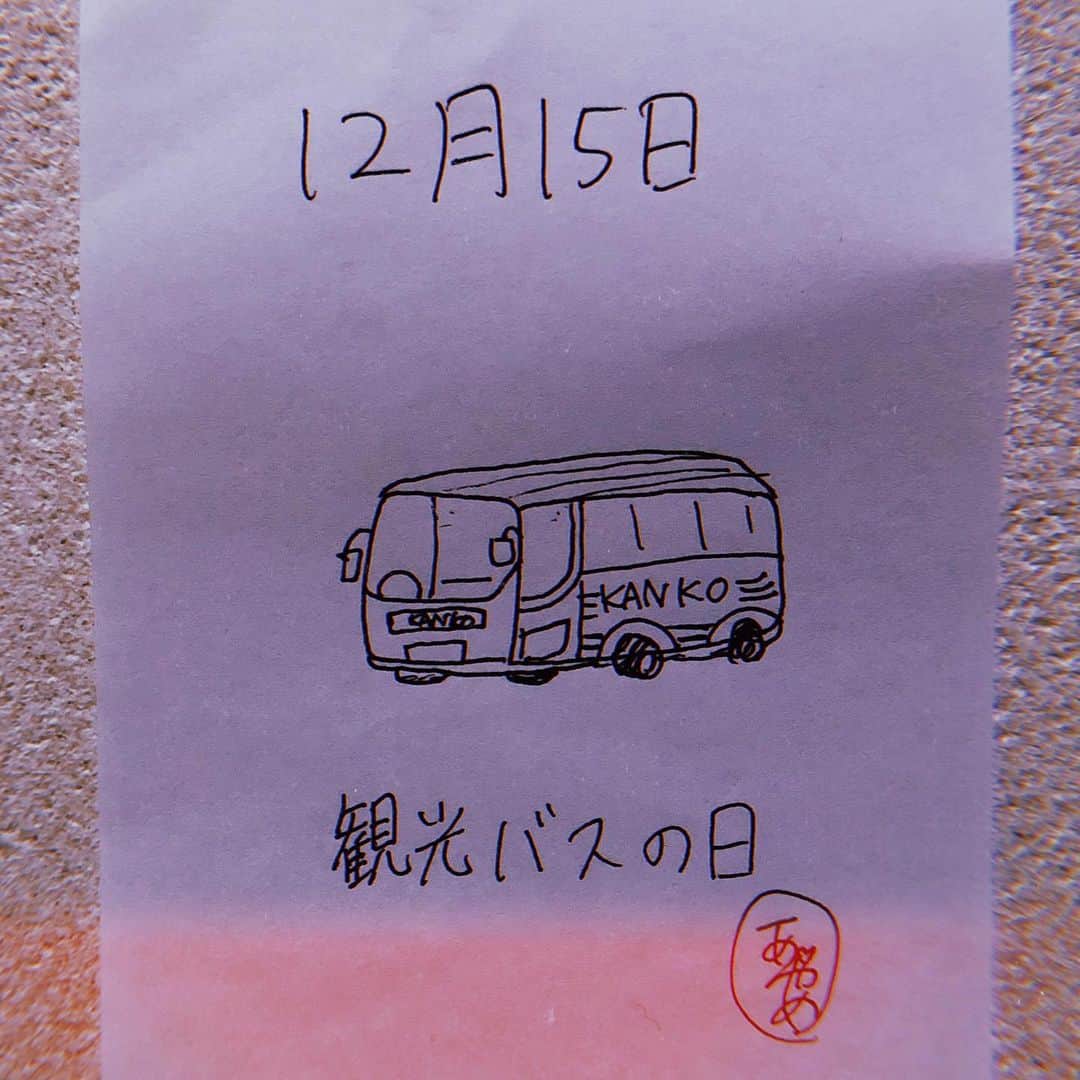 12月15日
KANKO
KANKO
観光バスの日
あやめ